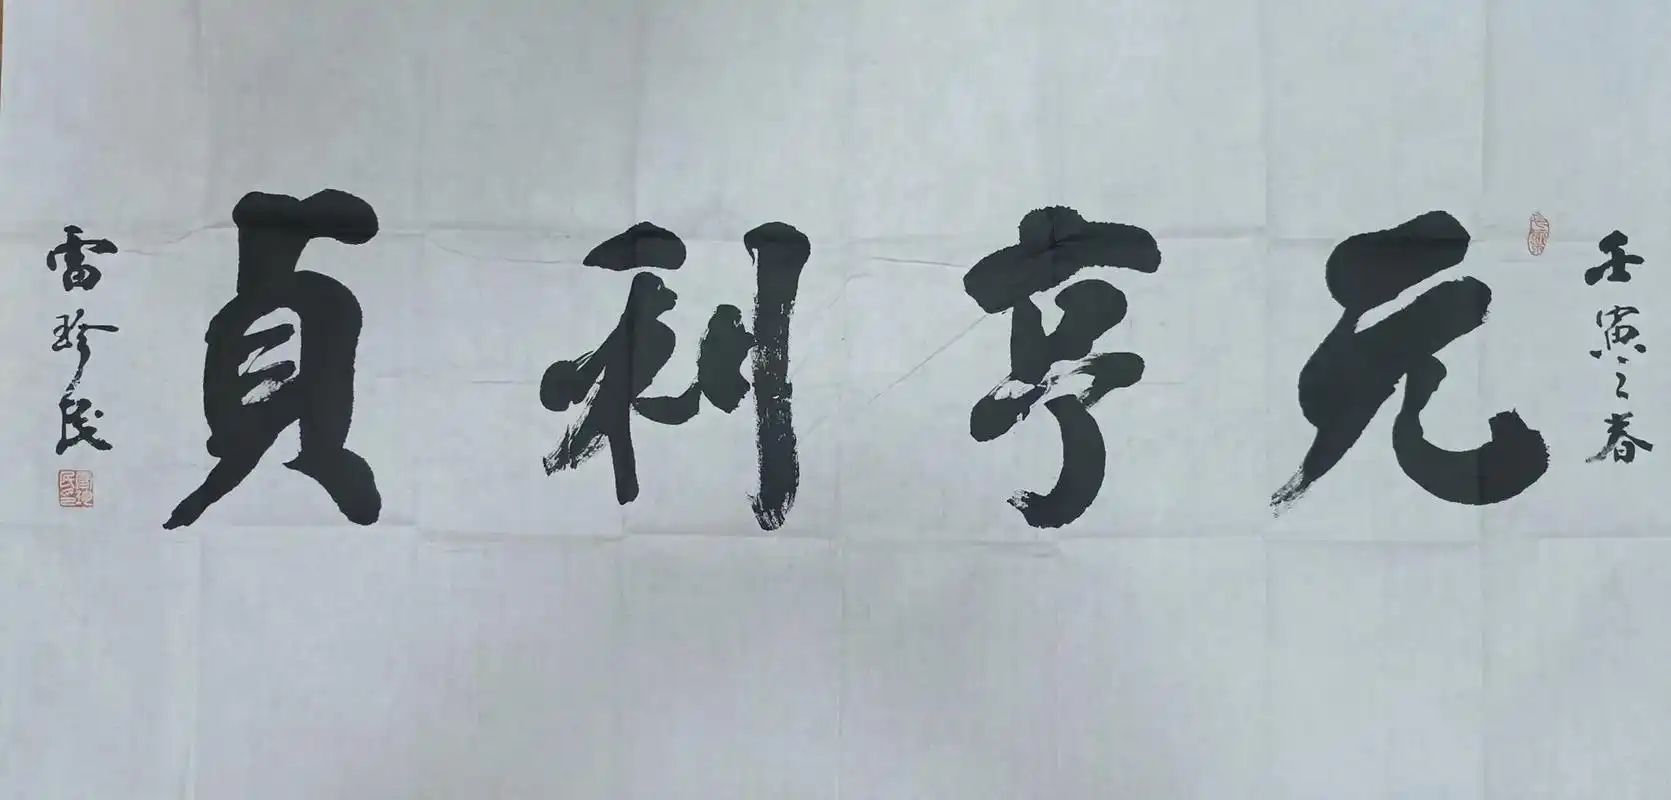 壬寅之春
元亨利貞
雷珍民